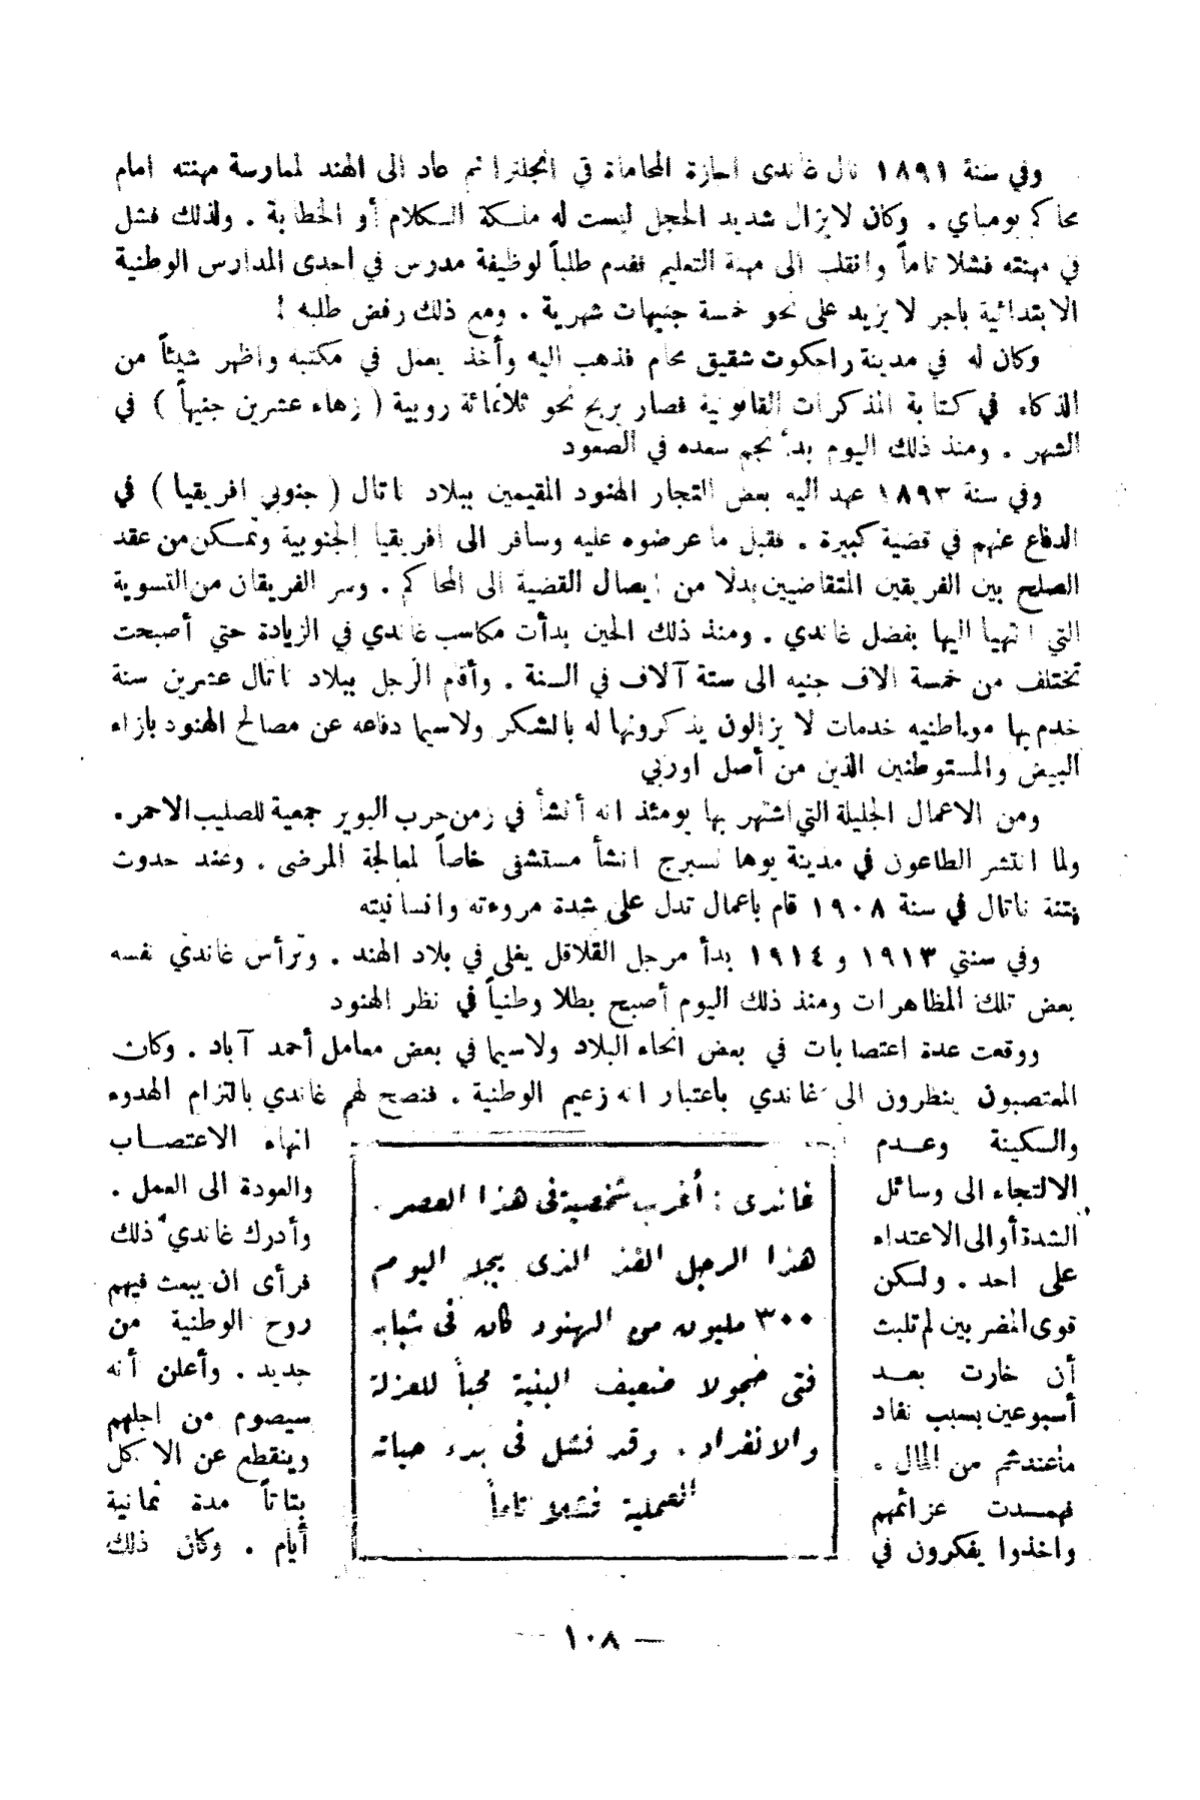 وفي سنة ١٨٩١ نال غاندى اجازة المحاماة في انجلترا ثم عاد الى الهند لممارسة مهنته امام
محاكم بومباي . وكان لا يزال شديد الخجل ليست له ملكة الكلام أو الخطابة . ولذلك فشل
في مهنته فشلا تاماً وانقلب الى مهنة التعليم فقدم طلباً لوظيفة مدرس في احدى المدارس الوطنية
الابتدائية باجر لا يزيد على نحو خمسة جنيهات شهرية . ومع ذلك رفض طلبه !
وكان له في مدينة راجكوت شقيق محام فذهب اليه وأخذ يعمل في مكتبه واظهر شيئاً من
الذكاء في كتابة المذكرات القانونية فصار يربح نحو ثلاثمائة روبية ( زهاء عشرين جنيهاً ) في
الشهر . ومنذ ذلك اليوم بدأ نجم سعده في الصعود
وفي سنة ١٨٩٣ عهد اليه بعض التجار الهنود المقيمين ببلاد ناتال ( جنوبي افريقيا ) في
الدفاع عنهم في قضية كبيرة . فقبل ما عرضوه عليه وسافر الى افريقيا الجنوبية وتمكن من عقد
الصلح بين الفريقين المتقاضيين بدلا من ايصال القضية الى المحاكم . وسر الفريقان من التسوية
التي انتهيا اليها بفضل غاندي . ومنذ ذلك الحين بدأت مكاسب غاندي في الزيادة حتى أصبحت
تختلف من خمسة الاف جنيه الى ستة آلاف في السنة . وأقام الرجل ببلاد ناتال عشرين سنة
خدم بها مواطنيه خدمات لا يزالون يذكرونها له بالشكر ولاسيما دفاعه عن مصالح الهنود بازاء
البيض والمستوطنين الذين من أصل اوربي
ومن الاعمال الجليلة التي اشتهر بها يومئذ انه أنشأ في زمن حرب البوير جمعية للصليب الاحمر .
ولما انتشر الطاعون في مدينة يوهانسبرج انشأ مستشفى خاصاً لمعالجة المرضى . وعند حدوث
فتنة ناتال في سنة ١٩٠٨ قام باعمال تدل على شدة مروءته وانسانيته
وفي سنتي ١٩١٣ و ١٩١٤ بدأ مرجل القلاقل يغلى في بلاد الهند . وترأس غاندي نفسه
بعض تلك المظاهرات ومنذ ذلك اليوم أصبح بطلا وطنياً في نظر الهنود
ووقعت عدة اعتصابات في بعض انحاء البلاد ولاسيما في بعض معامل أحمد آباد . وكان
المعتصبون ينظرون الى غاندي باعتبار انه زعيم الوطنية . فنصح لهم غاندي بالتزام الهدوء
والسكينة وعدم
الالتجاء الى وسائل
الشدة أو الى الاعتداء
على احد . ولكن
قوى المضربين لم تلبث
أن خارت بعد
أسبوعين بسبب نفاد
ما عندهم من المال .
فهمدت عزائمهم
واخذوا يفكرون في
غاندى : أغرب شخصية فى هذا العصر .
هذا الرجل الفذ الذى يجله اليوم
٣٠٠ مليون من الهنود كان فى شبابه
فتى خجولا ضعيف البنية محباً للعزلة
والانفراد . وقد فشل فى بدء حياته
العملية فشلا تاماً
انهاء الاعتصاب
والعودة الى العمل .
وأدرك غاندي ذلك
فرأى ان يبعث فيهم
روح الوطنية من
جديد . وأعلن أنه
سيصوم من اجلهم
وينقطع عن الاكل
بتاتاً مدة ثمانية
أيام . وكان ذلك
— ١٠٨ —